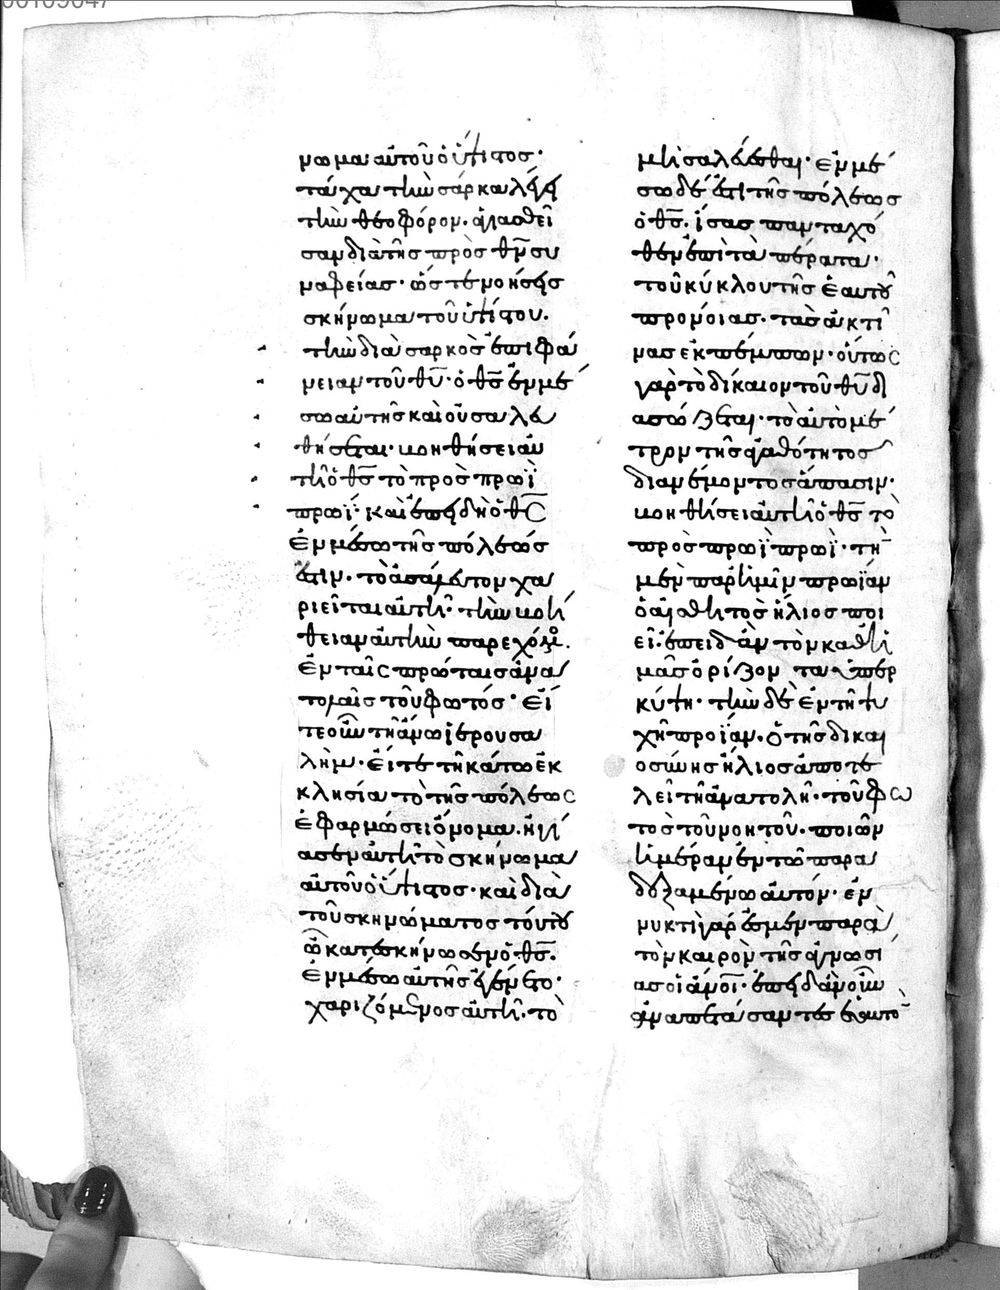 νωμα αὐτοῦ ὁ ὕψιστος·
τάχα τὴν σάρκα λέγει
τὴν θεοφόρον. ἁγιασθεῖ
σαν διὰ τῆς πρὸς θν συ
ναφείας· ὥστε νοήσεις
σκήνωμα τοῦ ὑψίστου.
τὴν διὰ σαρκὸς ἐπιφά
νειαν τοῦ θυ· ὁ θς ἐν μέ
σω αὐτῆς καὶ οὐ σαλευ
θήσεται· βοηθήσει αὐ
τῆ ὁ θς τὸ πρὸς πρωῒ
πρωΐ· καὶ ἐπειδὴ ὁ θς
ἐν μέσω τῆς πόλεώς
ἐστιν. τὸ ἀσάλευτον χα
ριεῖται αὐτῆ· τὴν βοή
θειαν αὐτὴν παρεχόμ.
ἐν ταῖς πρώταις ἀνα
τολαῖς τοῦ φωτός· εἴ
τε οὖν τῆ ἄνω ἱερουσα
λὴμ· εἴτε τῆ κάτω ἐκ
κλησία τὸ τῆς πόλεως
ἐφαρμώσει ὄνομα. ἡγί
ασεν αὐτῆ τὸ σκήνωμα
αὐτοῦ ὁ ὕψιστος· καὶ διὰ
τοῦ σκηνώματος τούτου
ὧ κατεσκήνωσεν ὁ θς.
ἐν μέσω αὐτῆς ἐγένετο·
χαριζόμενος αὐτῆ. τὸ
μὴ σαλεύεσθαι· ἐν μέ
σω δὲ ἐστὶ τῆς πόλεως
ὁ θς. ἴσας πανταχό
θεν ἐπὶ τὰ πέρατα·
τοῦ κύκλου τῆς ἑαυτοῦ
προνοίας. τὰς ἀκτῖ
νας ἐκπέμπων· οὕτως
γὰρ τὸ δίκαιον τοῦ θυ δι
ασώζεται· τὸ αὐτὸ μέ
τρον τῆς ἀγαθότητος
διανέμον τοῖς ἅπασιν·
βοηθήσει αὐτῆ ὁ θς τὸ
πρὸς πρωῒ πρωΐ· τὴν
μὲν παρ ἡμῖν πρωΐαν
ὁ αἰσθητὸς ἥλιος ποι
εῖ· ἐπειδὰν τὸν καθ ἡ
μᾶς ὁρίζοντα ὑπερ
κύψη· τὴν δὲ ἐν τῆ ψυ
χῆ πρωΐαν. ὁ τῆς δικαι
οσύνης ἥλιος ἀποτε
λεῖ τῆ ἀνατολῆ· τοῦ φω
τὸς τοῦ νοητοῦ. ποιῶν
ἡμέραν ἐν τῶ παρα
δεξαμένω αὐτόν· ἐν
νυκτὶ γάρ ἐσμεν παρὰ
τὸν καιρὸν τῆς ἀγνωσί
ας οἱ ἄνοι· ἐπειδὰν οὖν
ἀναπετάσαντες ἑαυτῶν